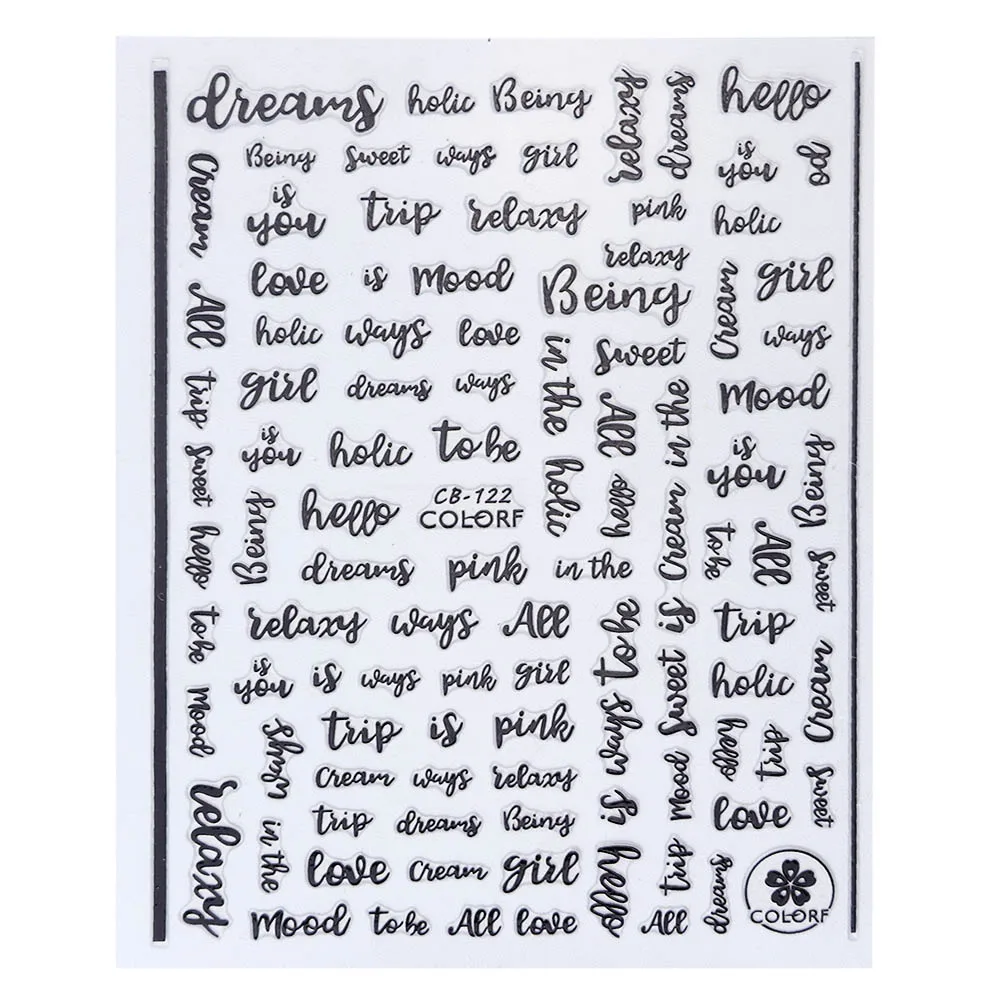 dreams holic Being relaxy dreams hello
Being Sweet ways girl is you od
Cream is you trip relaxy pink holic
relaxy
love is Mood Being Cream girl
All holic ways love in the Sweet ways
trip girl dreams ways All Cream in the Mood
Sweet is you holic to be holic hello is you Being
hello Being hello CB-122
COLORF to be All Sweet
dreams pink in the
to be relaxy ways All to be Sweet is trip
is you is ways pink girl holic Cream
Mood ways trip is pink ways Mood hello trip
Cream ways relaxy Sweet
relaxy in the trip dreams Being is love
love Cream girl hello trip dreams
COLORF
Mood to be All love All